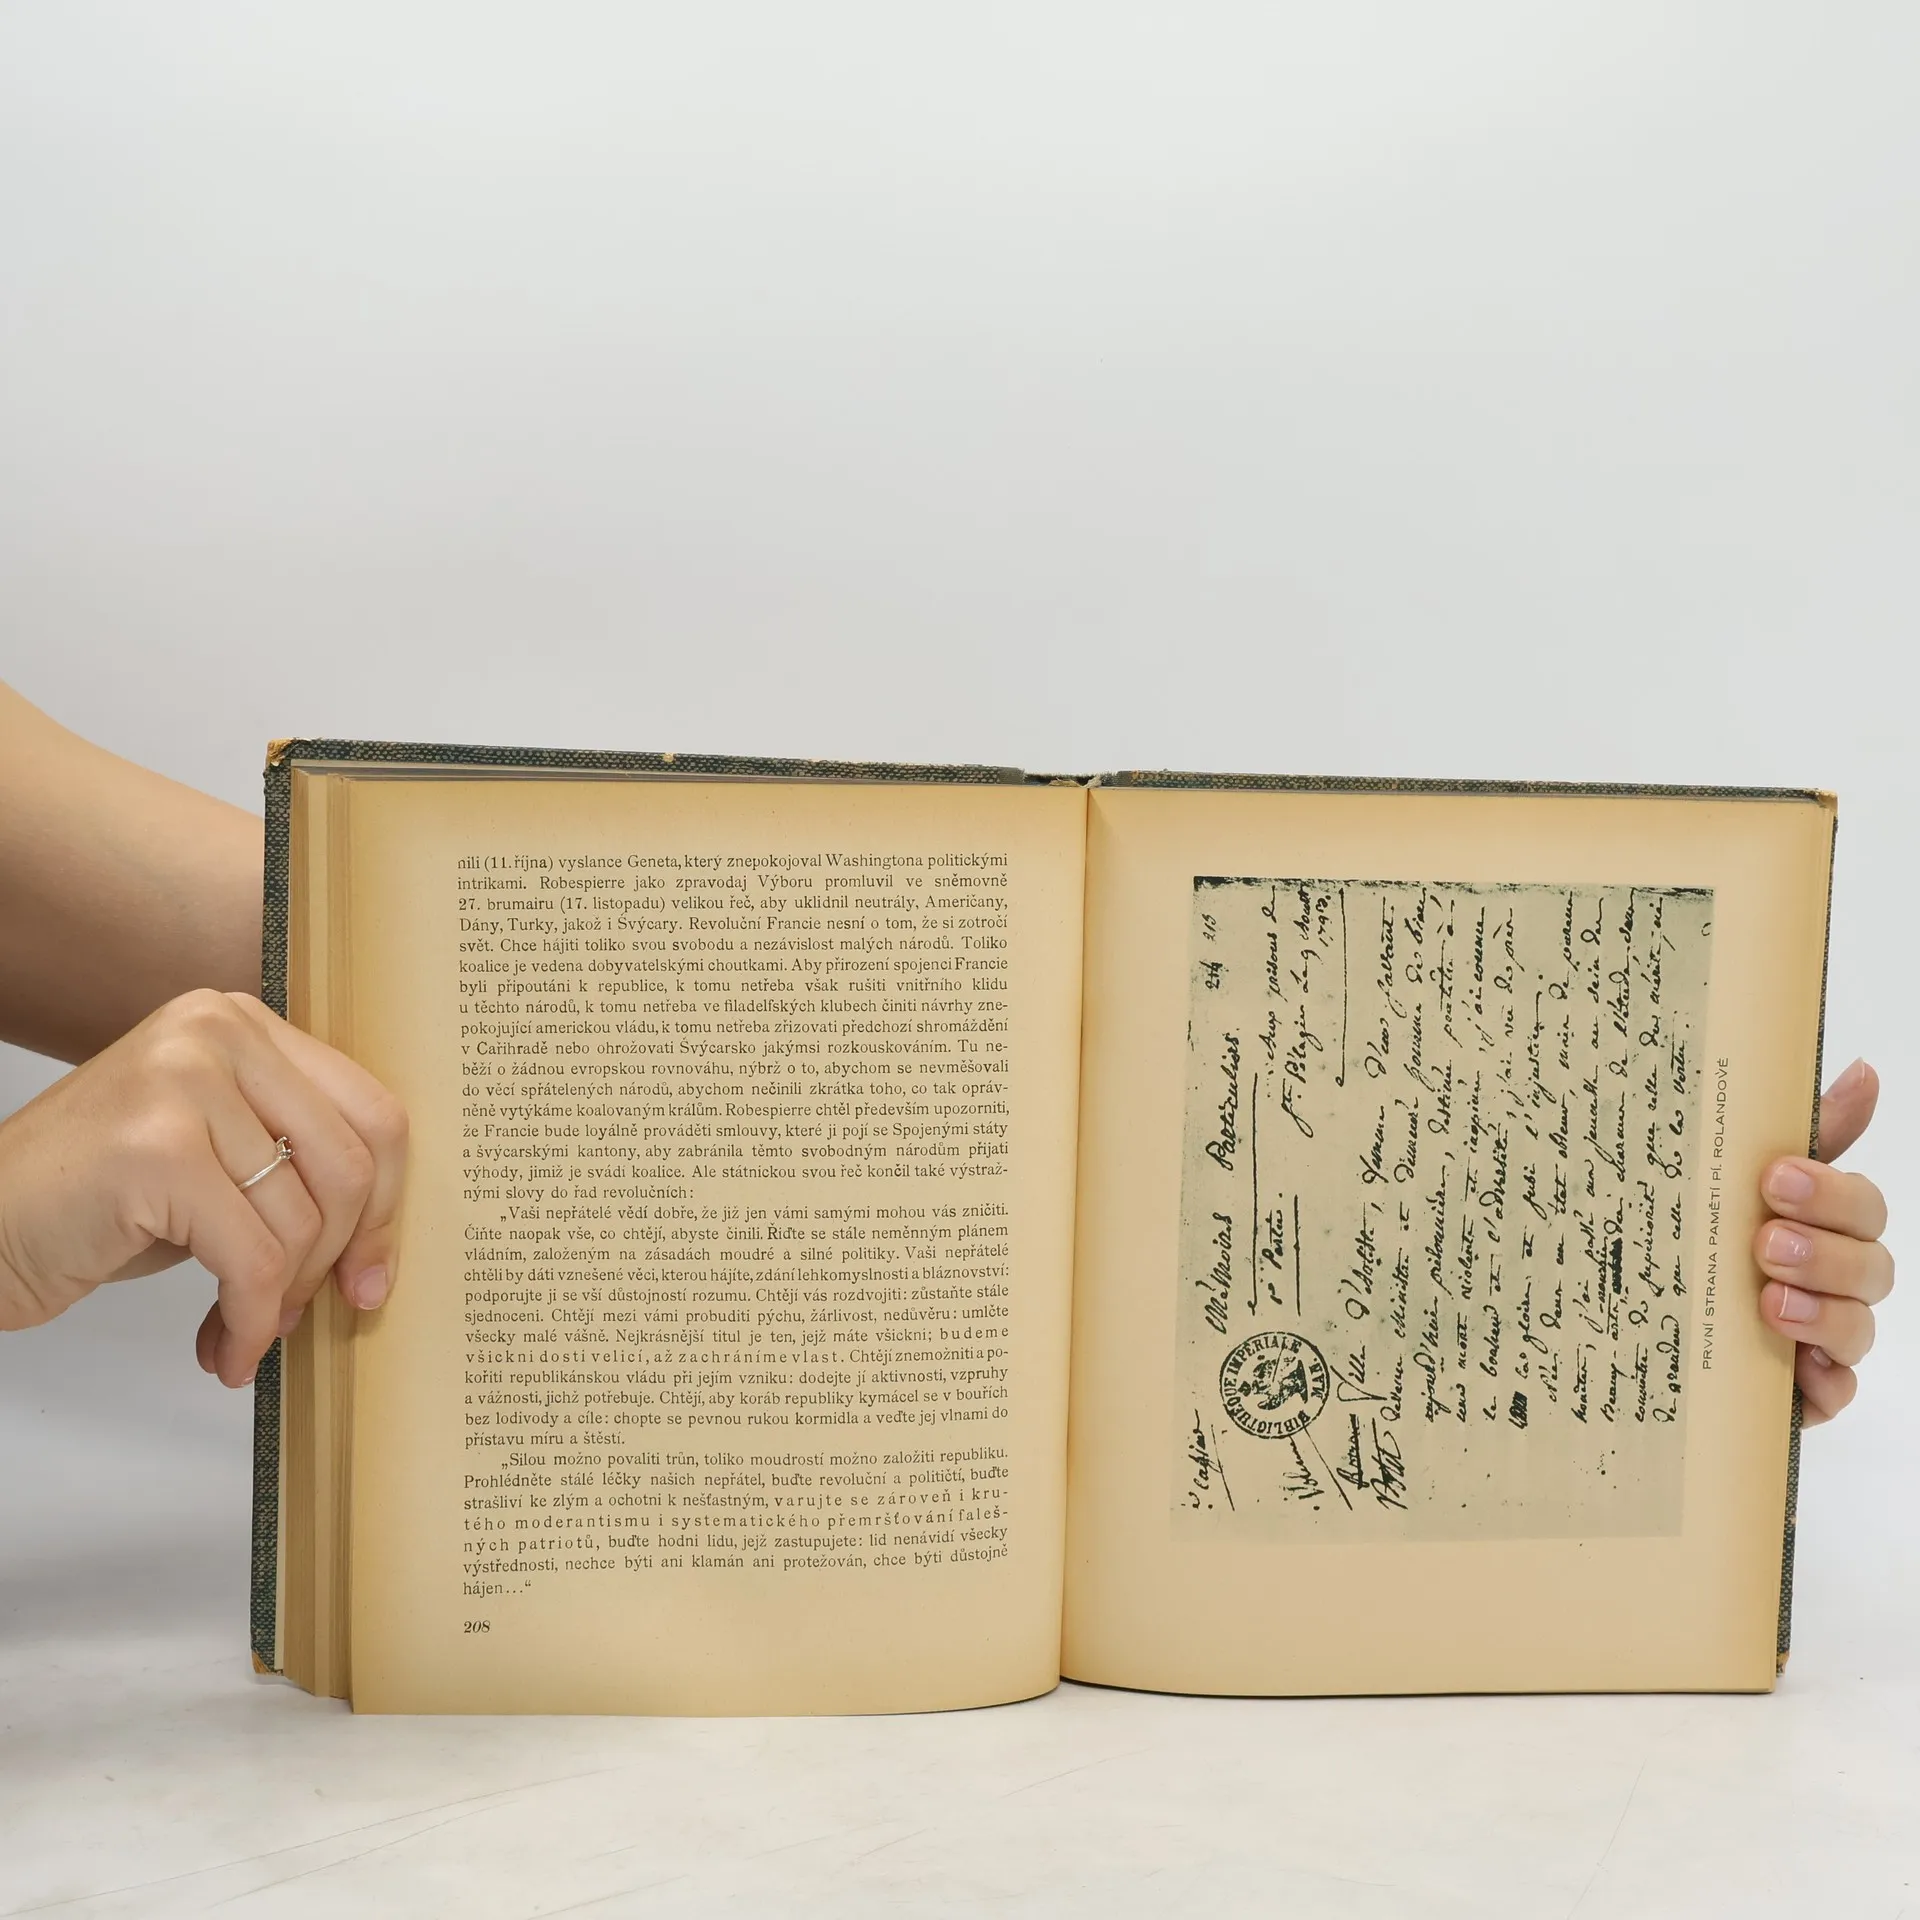 nili (11. října) vyslance Geneta, který znepokojoval Washingtona politickými
intrikami. Robespierre jako zpravodaj Výboru promluvil ve sněmovně
27. brumairu (17. listopadu) velikou řeč, aby uklidnil neutrály, Američany,
Dány, Turky, jakož i Švýcary. Revoluční Francie nesní o tom, že si zotročí
svět. Chce hájiti toliko svou svobodu a nezávislost malých národů. Toliko
koalice je vedena dobyvatelskými choutkami. Aby přirození spojenci Francie
byli připoutáni k republice, k tomu netřeba však rušiti vnitřního klidu
u těchto národů, k tomu netřeba ve filadelfských klubech činiti návrhy zne-
pokojující americkou vládu, k tomu netřeba zřizovati předchozí shromáždění
v Cařihradě nebo ohrožovati Švýcarsko jakýmsi rozkouskováním. Tu ne-
běží o žádnou evropskou rovnováhu, nýbrž o to, abychom se nevměšovali
do věcí spřátelených národů, abychom nečinili zkrátka toho, co tak opráv-
něně vytýkáme koalovaným králům. Robespierre chtěl především upozorniti,
že Francie bude loyálně prováděti smlouvy, které ji pojí se Spojenými státy
a švýcarskými kantony, aby zabránila těmto svobodným národům přijati
výhody, jimiž je svádí koalice. Ale státnickou svou řeč končil také výstraž-
nými slovy do řad revolučních:
„Vaši nepřátelé vědí dobře, že již jen vámi samými mohou vás zničiti.
Čiňte naopak vše, co chtějí, abyste činili. Řiďte se stále neměnným plánem
vládním, založeným na zásadách moudré a silné politiky. Vaši nepřátelé
chtěli by dáti vznešené věci, kterou hájíte, zdání lehkomyslnosti a bláznovství:
podporujte ji se vší důstojností rozumu. Chtějí vás rozdvojiti: zůstaňte stále
sjednoceni. Chtějí mezi vámi probuditi pýchu, žárlivost, nedůvěru: umlčte
všecky malé vášně. Nejkrásnější titul je ten, jejž máte všickni; budeme
všickni dosti velicí, až zachráníme vlast. Chtějí znemožniti a po-
kořiti republikánskou vládu při jejím vzniku: dodejte jí aktivnosti, vzpruhy
a vážnosti, jichž potřebuje. Chtějí, aby koráb republiky kymácel se v bouřích
bez lodivody a cíle: chopte se pevnou rukou kormidla a veďte jej vlnami do
přístavu míru a štěstí.
„Silou možno povaliti trůn, toliko moudrostí možno založiti republiku.
Prohlédněte stálé léčky našich nepřátel, buďte revoluční a političtí, buďte
strašliví ke zlým a ochotni k nešťastným, varujte se zároveň i kru-
tého moderantismu i systematického přemršťování faleš-
ných patriotů, buďte hodni lidu, jejž zastupujete: lid nenávidí všecky
výstřednosti, nechce býti ani klamán ani protežován, chce býti důstojně
hájen...“
208
Mémoires Particuliers
1e Partie.
BIBLIOTHEQUE IMPERIALE
MAN.
Fille d'artiste, femme d'un savant
PRVNÍ STRANA PAMĚTÍ PÍ. ROLANDOVÉ